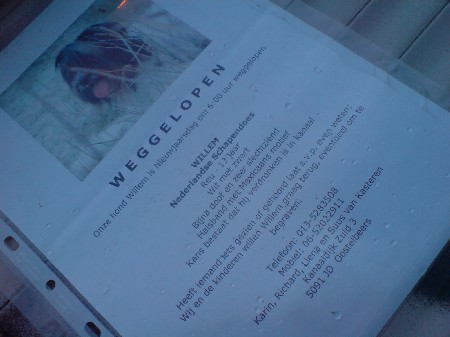 WEGGELOPEN
Onze hond Willem is Nieuwjaarsdag om 6.00 uur weggelopen.
WILLEM
Nederlandse Schapendoes
Reu - 13 jaar
Wit met zwart
Bijna doof en zeer slechtziend
Halsband met Mexicaans motief
Kans bestaat dat hij verdronken is in kanaal.
Heeft iemand iets gezien of gehoord laat t s.v.p. even weten:
Wij en de kinderen willen Willem graag terug, eventueel om te
begraven.
Telefoon: 013-5283508
Mobiel: 06-52022911
Karin, Richard, Liene en Suus van Kasteren
Kanaaldijk Zuid 3
5091 JD Oostelbeers